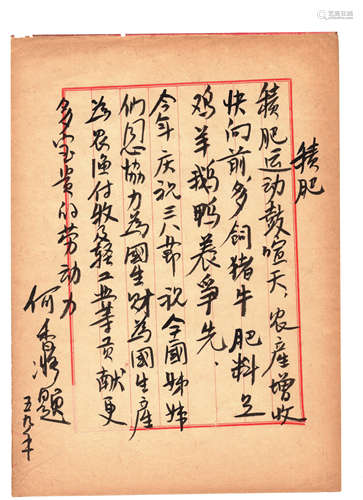 積肥
積肥运动鼓喧天，农產增收
快向前，多飼猪牛肥料足
鸡羊鵝鴨養爭先。
今年庆祝三八節祝全國姊妹
们同心協力为國生財为國生產
为农漁付收及轻工业等貢献更
多宝贵的劳动力
何香凝題
五九年